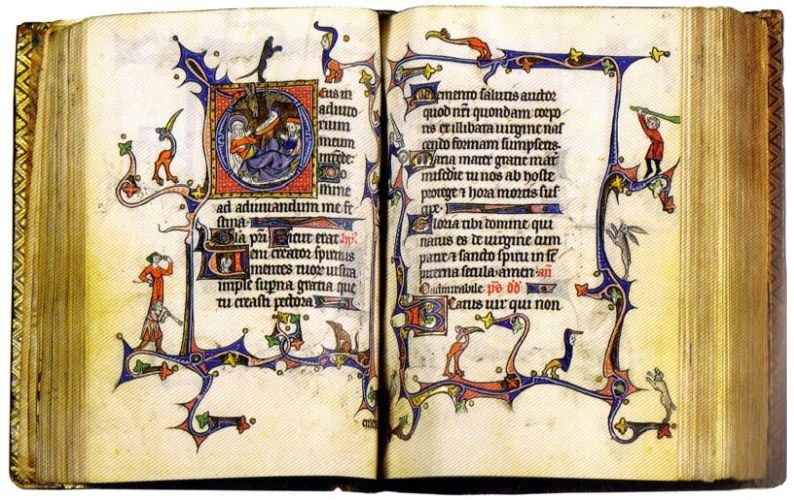 Deus in
adiuto
rium
meum
intēde Do
mine
ad adiuuandum me fe
stina
Gla pri Sicut erat
Veni creator spiritus
mentes tuor uisita
imple supna gratia que
tu creasti pectora
Memento salutis auctor
quod nri quondam corpo
ris ex illibata uirgine nas
cendo formam sumpseris
Maria mater gratie mat
misedie tu nos ab hoste
protege & hora mortis sus
cipe
Gloria tibi domine qui
natus es de uirgine cum
patre & sancto spiritu in se
piterna secula amen an
O admirabile ps dd
Beatus uir qui non